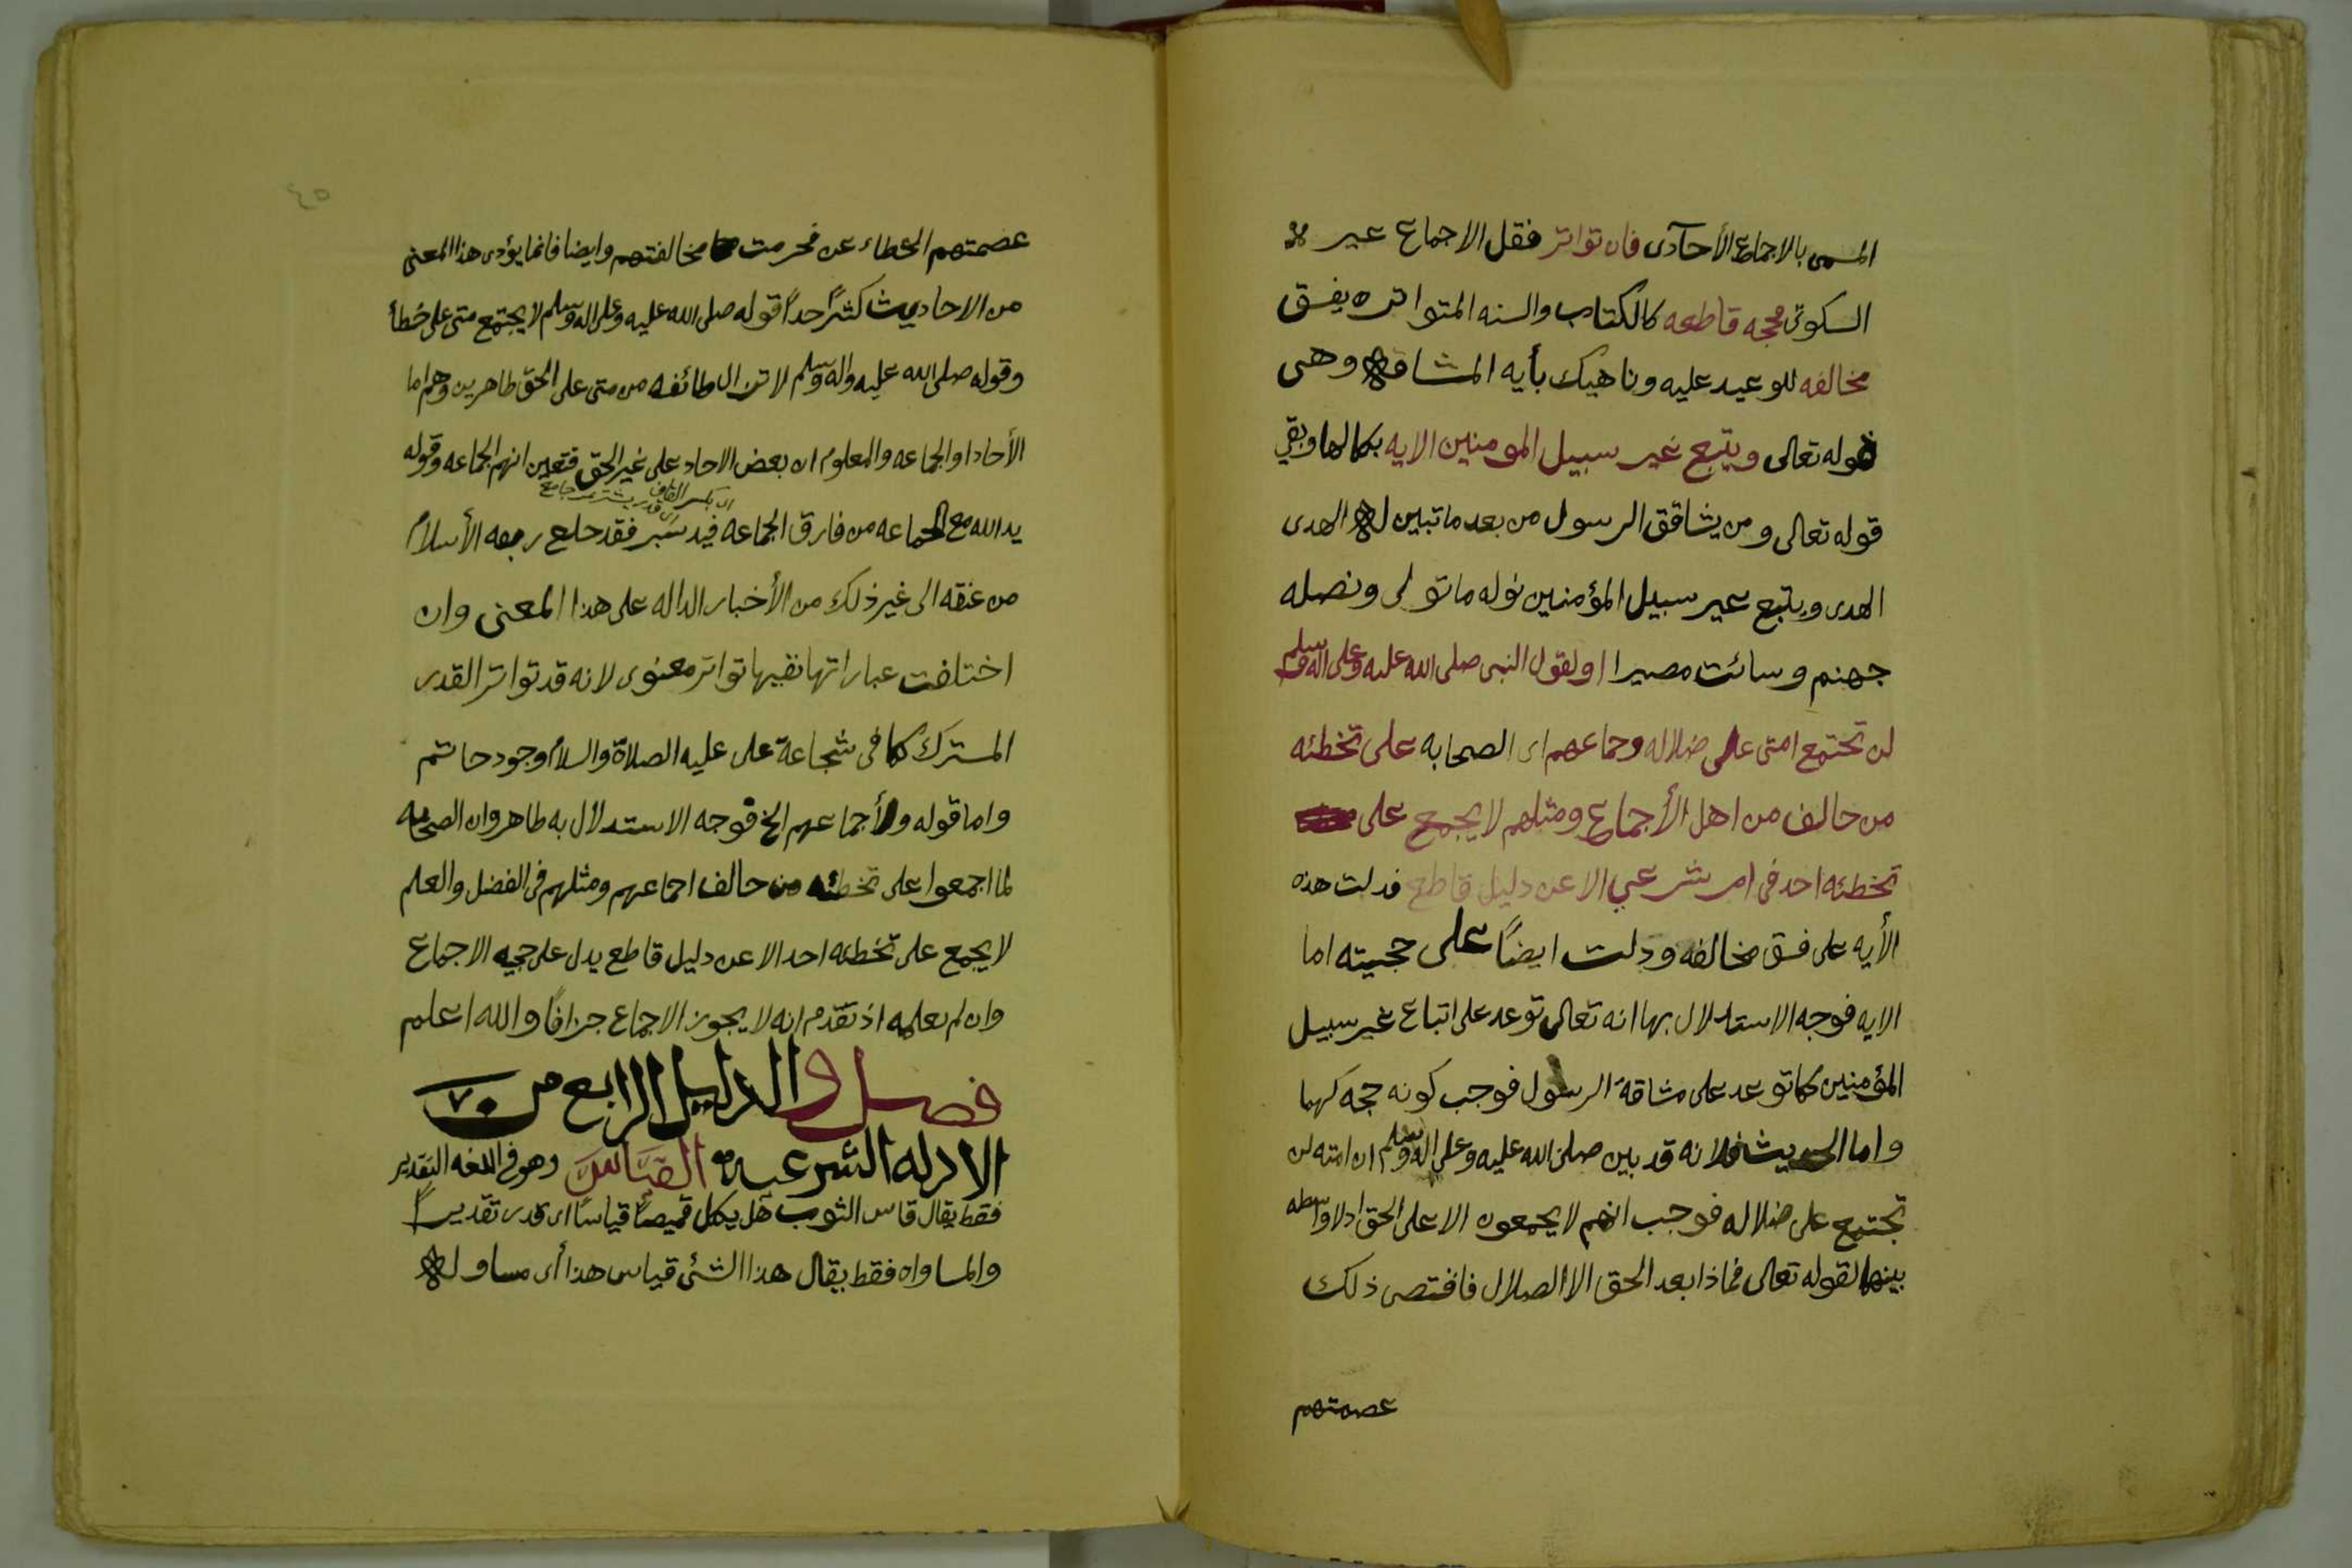 المسمى بالاجماع الأحآدى فان تواتر فقل الاجماع عير
السكوتى فحجه قاطعه كالكتاب والسنه المتواتره يفسق
مخالفه للوعيد عليه وناهيك بأيه المشاقه وهى
قوله تعالى ويتبع غير سبيل المومنين الايه بكمالها وبقي
قوله تعالى ومن يشاقق الرسول من بعد ماتبين له الهدى
الهدى ويتبع عير سبيل المؤمنين نوله ماتولى ونصله
جهنم وسائت مصيرا اولقول النبى صلى الله عليه وعلى اله وسلم
لن تجتمع امتى على ضلاله وجماعهم اى الصحابه على تخطئه
من حالف من اهل الأجماع ومثلهم لايجمع على
تخطئه احد فى امر شرعي الا عن دليل قاطع فدلت هذه
الأيه على فسق مخالفه ودلت ايضاً على حجيته اما
الايه فوجه الاستدلال بها انه تعالى توعد على اتباع غير سبيل
المؤمنين كما توعد على مشاقة الرسول فوجب كونه حجه كهما
واما الحديث فلانه قد بين صلى الله عليه وعلى اله وسلم ان امته لن
تجتمع على ضلاله فوجب انهم لايجمعون الا على الحق اذ لا واسطه
بينهما لقوله تعالى فماذا بعد الحق الا الضلال فاقتضى ذلك
عصمتهم
٤٥
عصمتهم الخطاء عن فحرمت مخالفتهم وايضا فانما يؤدى هذا المعنى
من الاحاديث كثيرٌ جداً قوله صلى الله عليه وعلى اله وسلم لايجتمع متى على خطأ
وقوله صلى الله عليه واله وسلم لاتزال طائفه من متى على الحق ظاهرين وهم اما
الأحاد او الجماعه والمعلوم ان بعض الاحاد على غير الحق فتعين انهم الجماعه وقوله
اى بكسر القاف
اى قدر يشتر جامع
يد الله مع الجماعه من فارق الجماعه قيد شبر فقد خلع ربقه الأسلام
من عنقه الى غير ذلك من الأخبار الداله على هذا المعنى وان
اختلفت عباراتها ففيها تواتر معنوى لانه قد تواتر القدر
المسترك كما فى شجاعة على عليه الصلاة والسلام وجود حاتم
واما قوله ولأجماعهم الخ فوجه الاستدلال به ظاهر وان الصحابه
لما اجمعوا على تخطئه من حالف اجماعهم ومثلهم فى الفضل والعلم
لايجمع على تخطئه احد الا عن دليل قاطع يدل على حجيه الاجماع
وان لم نعلمه اذ تقدم انه لايجوز الاجماع جزافاً والله اعلم
فصل والدليل الرابع من
الادله الشرعيه القياس وهو فى اللغه التقدير
فقط يقال قاس الثوب هل يكمل قميصاً قياساً اى قدر تقديراً
والمساواه فقط يقال هذا الشئ قياس هذا أى مساو له